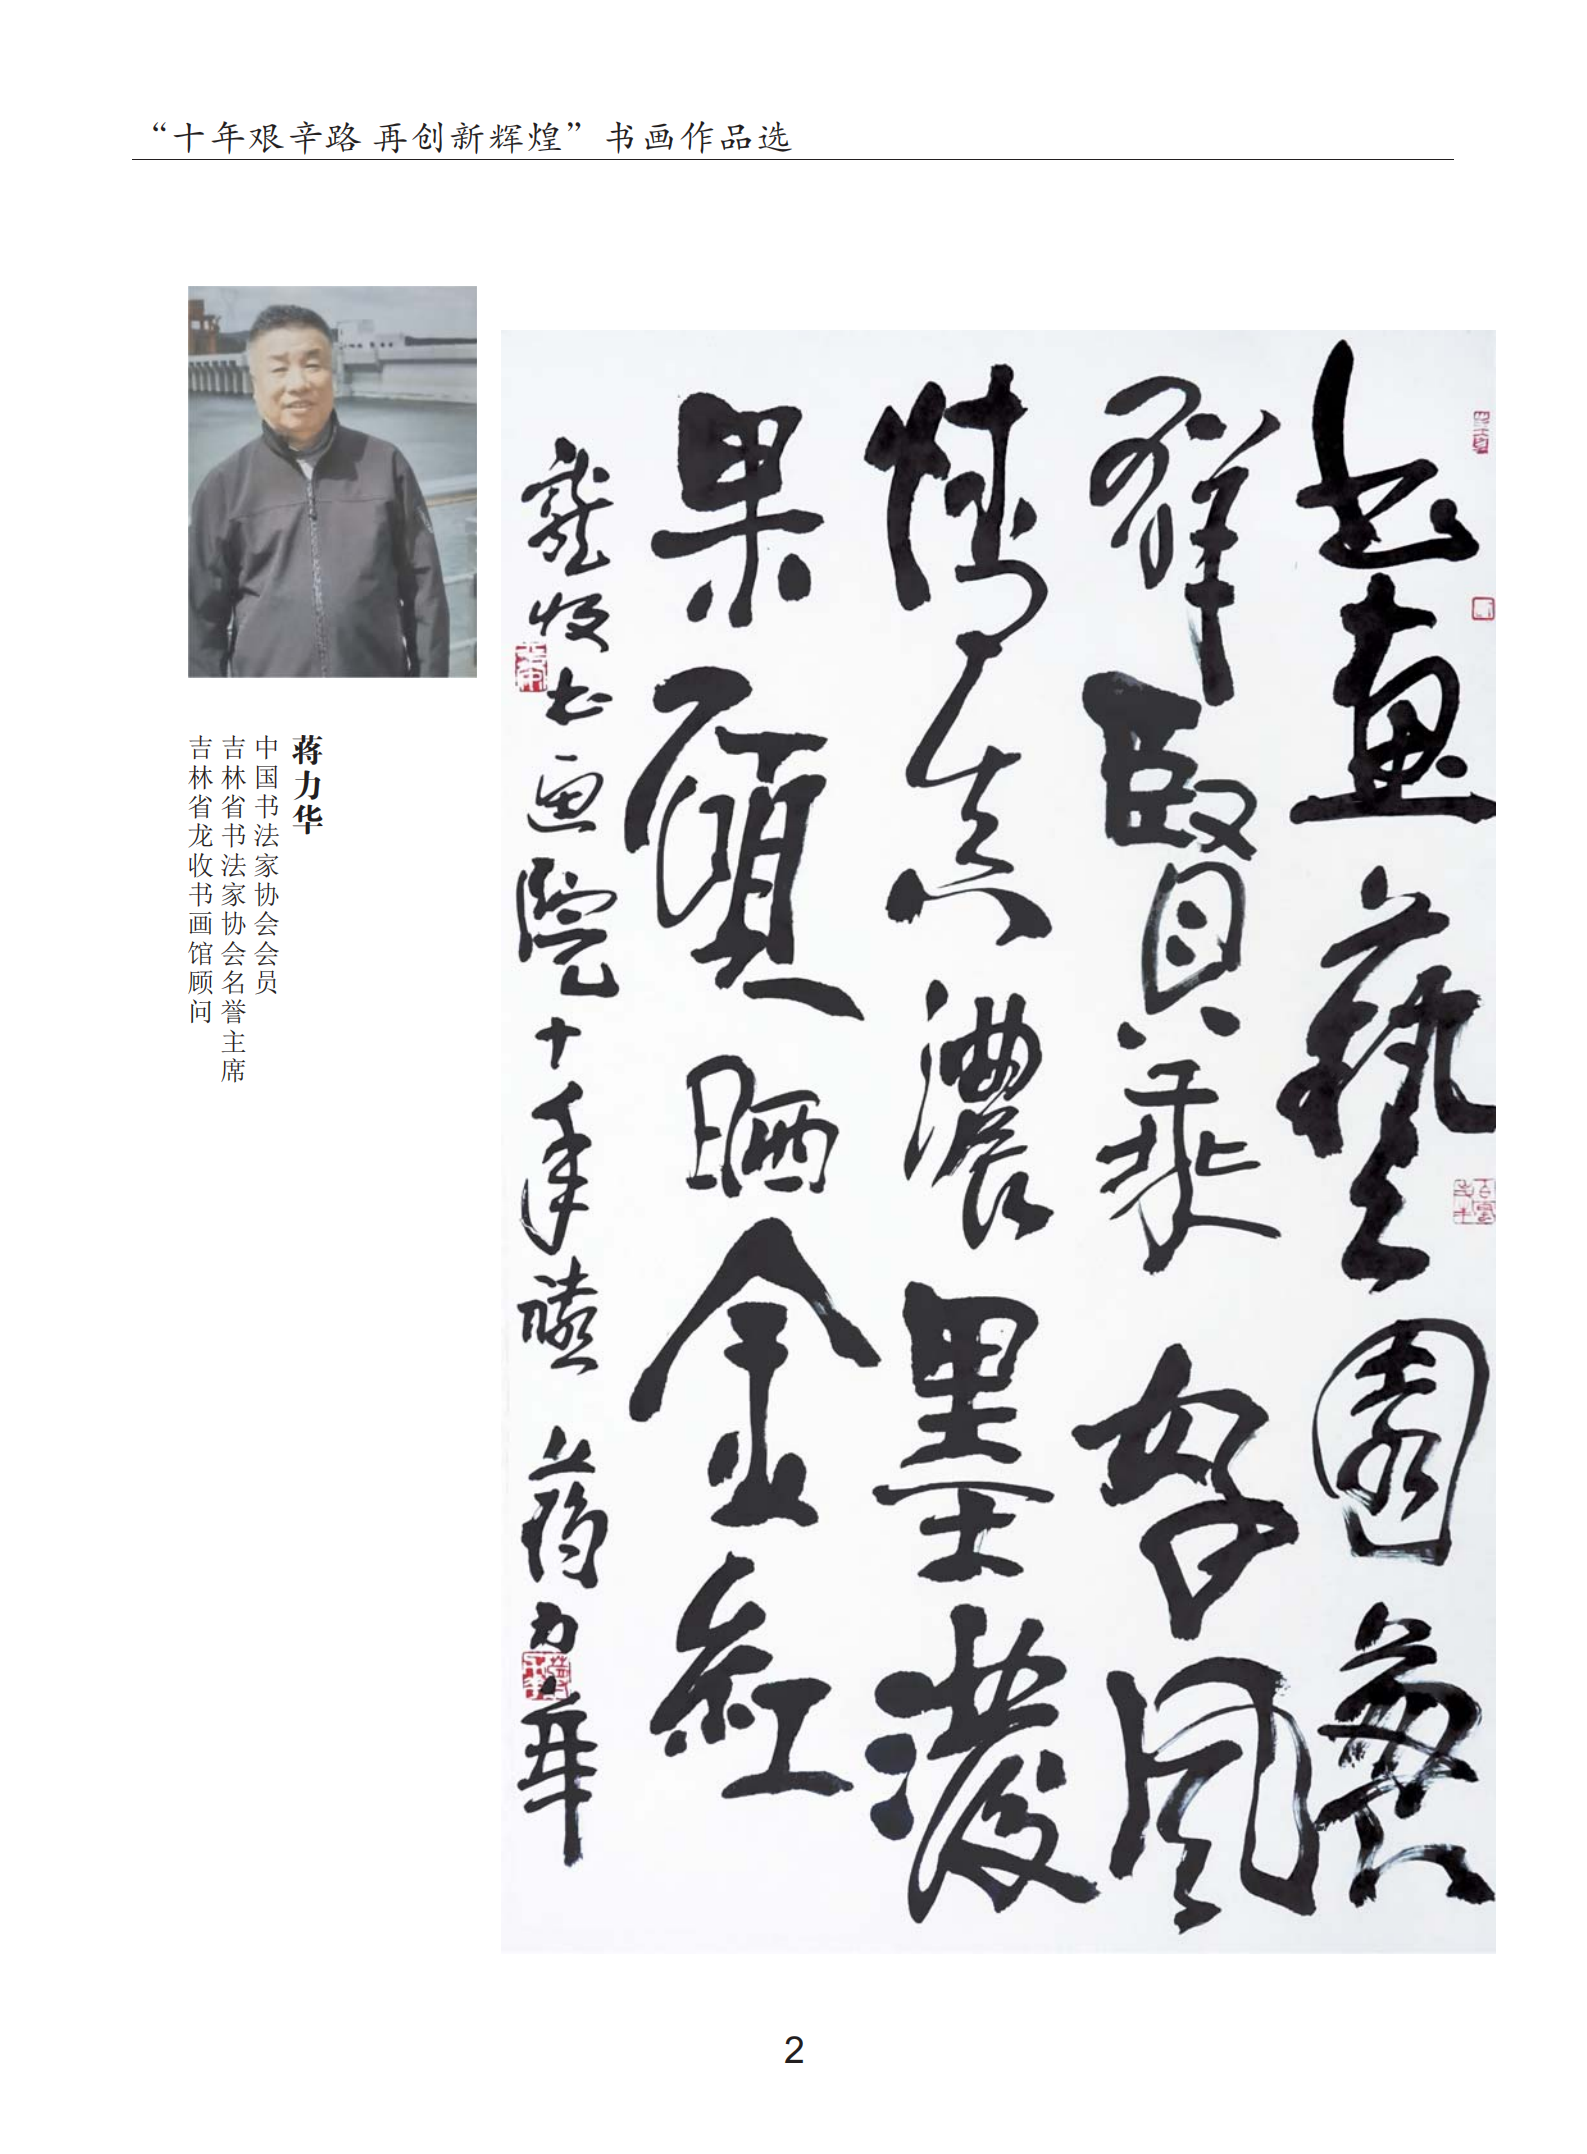 “十年艰辛路 再创新辉煌”书画作品选
蒋力华
中国书法家协会会员
吉林省书法家协会名誉主席
吉林省龙收书画馆顾问
书画藝園舞
群賢乘好风
情真濃墨潑
果碩晒金紅
龍收书画院十年禧 蒋力華
2